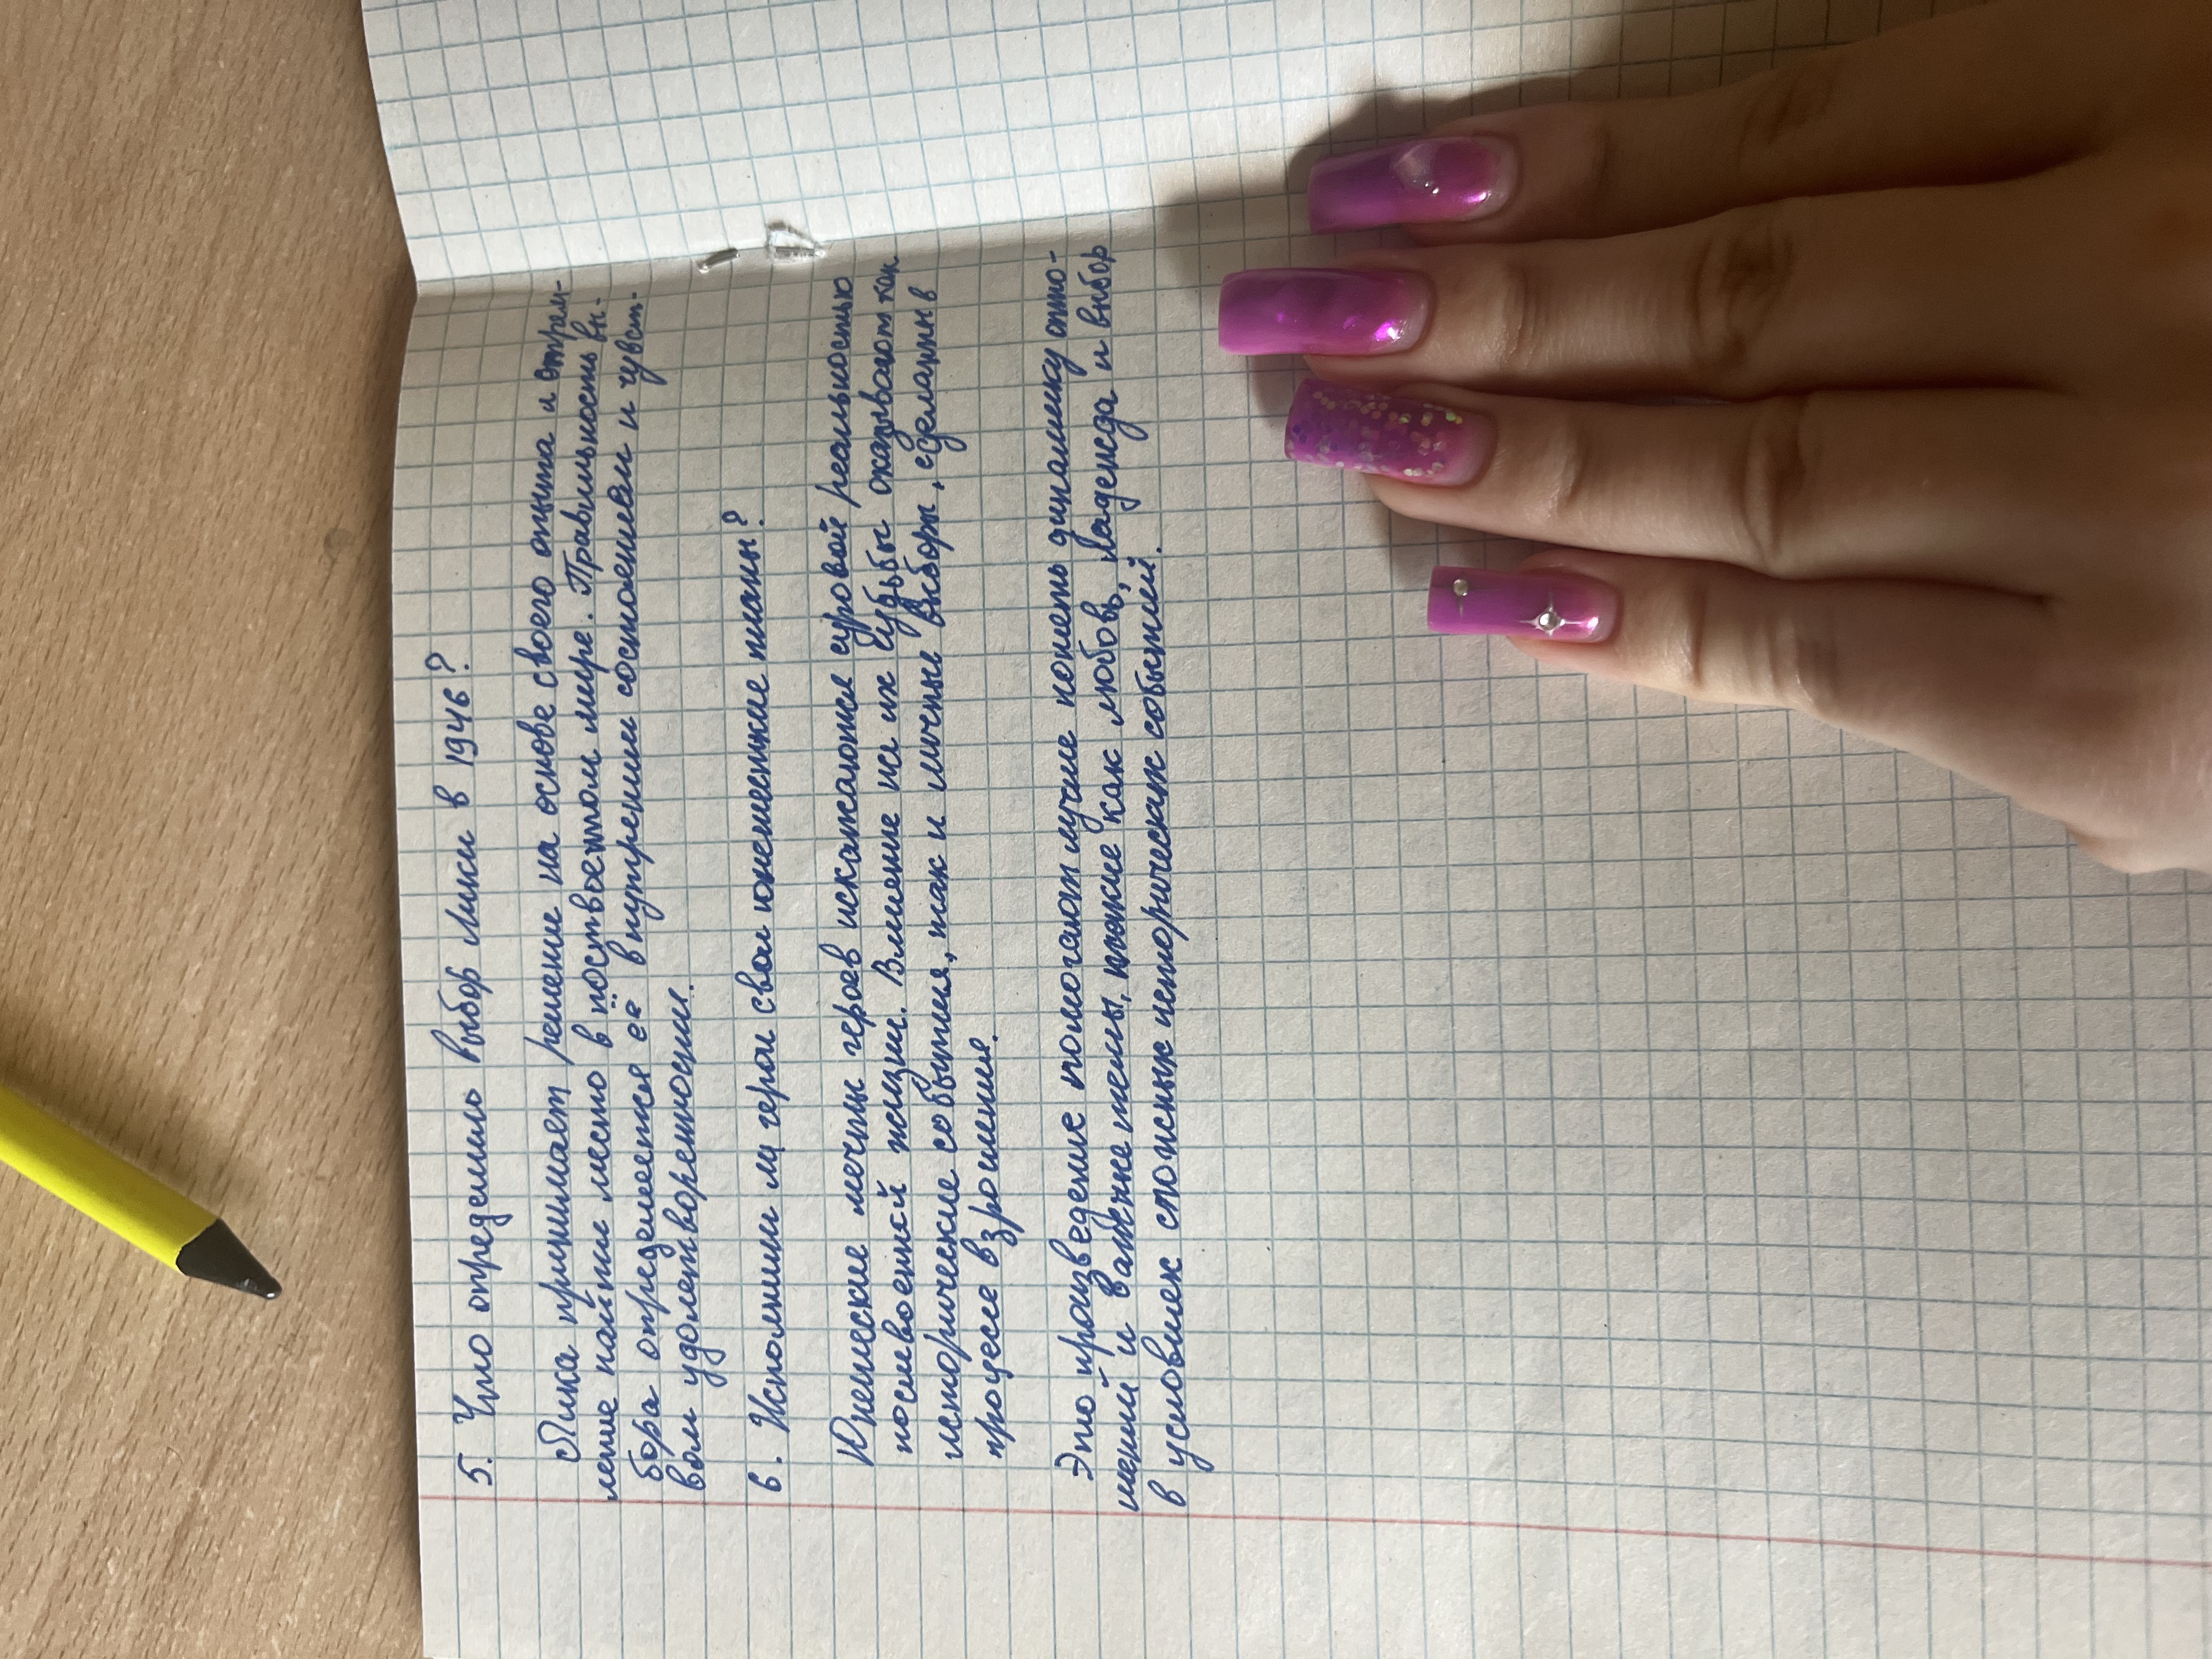 5. Что определило выбор Лики в 1946?
Лика принимает решение на основе своего опыта и стрем-
ление найти место в поствоенном мире. Правильность вы-
бора определяется её внутренним состоянием и чувст-
вом удолетворенности.
6. Исполнили ли герои свои юношеские планы?
Юнешеские мечты героев искажаются суровой реальностью
послевоенной жизни. Влияние на их судьбы оказывают как
исторические события, так и личные выборы, сделанные в
процессе взросления.
Это произведение помогают лучше понять динамику отно-
шений и важные темы, такие как любовь, надежда и выбор
в условиях сложных исторических событий.